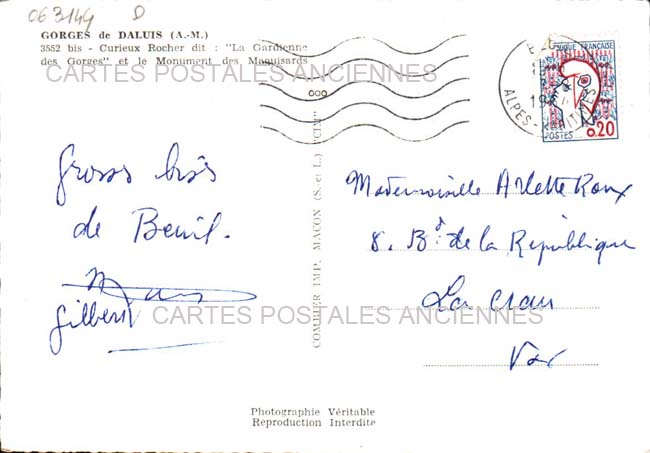 063149 D
GORGES de DALUIS (A.-M.)
3552 bis - Curieux Rocher dit : "La Gardienne
des Gorges" et le Monument des Maquisards
CARTES POSTALES ANCIENNES
Gross bises
de Beuil.
Gilbert
CARTES POSTALES ANCIENNES
COMBIER IMP. MACON (S. et L.) "CIM"
ALPES-MARITIMES
REPUBLIQUE FRANÇAISE
POSTES
0,20
Mademoiselle Arlette Roux
8. Bd de la République
La Crau
Var
Photographie Véritable
Reproduction Interdite